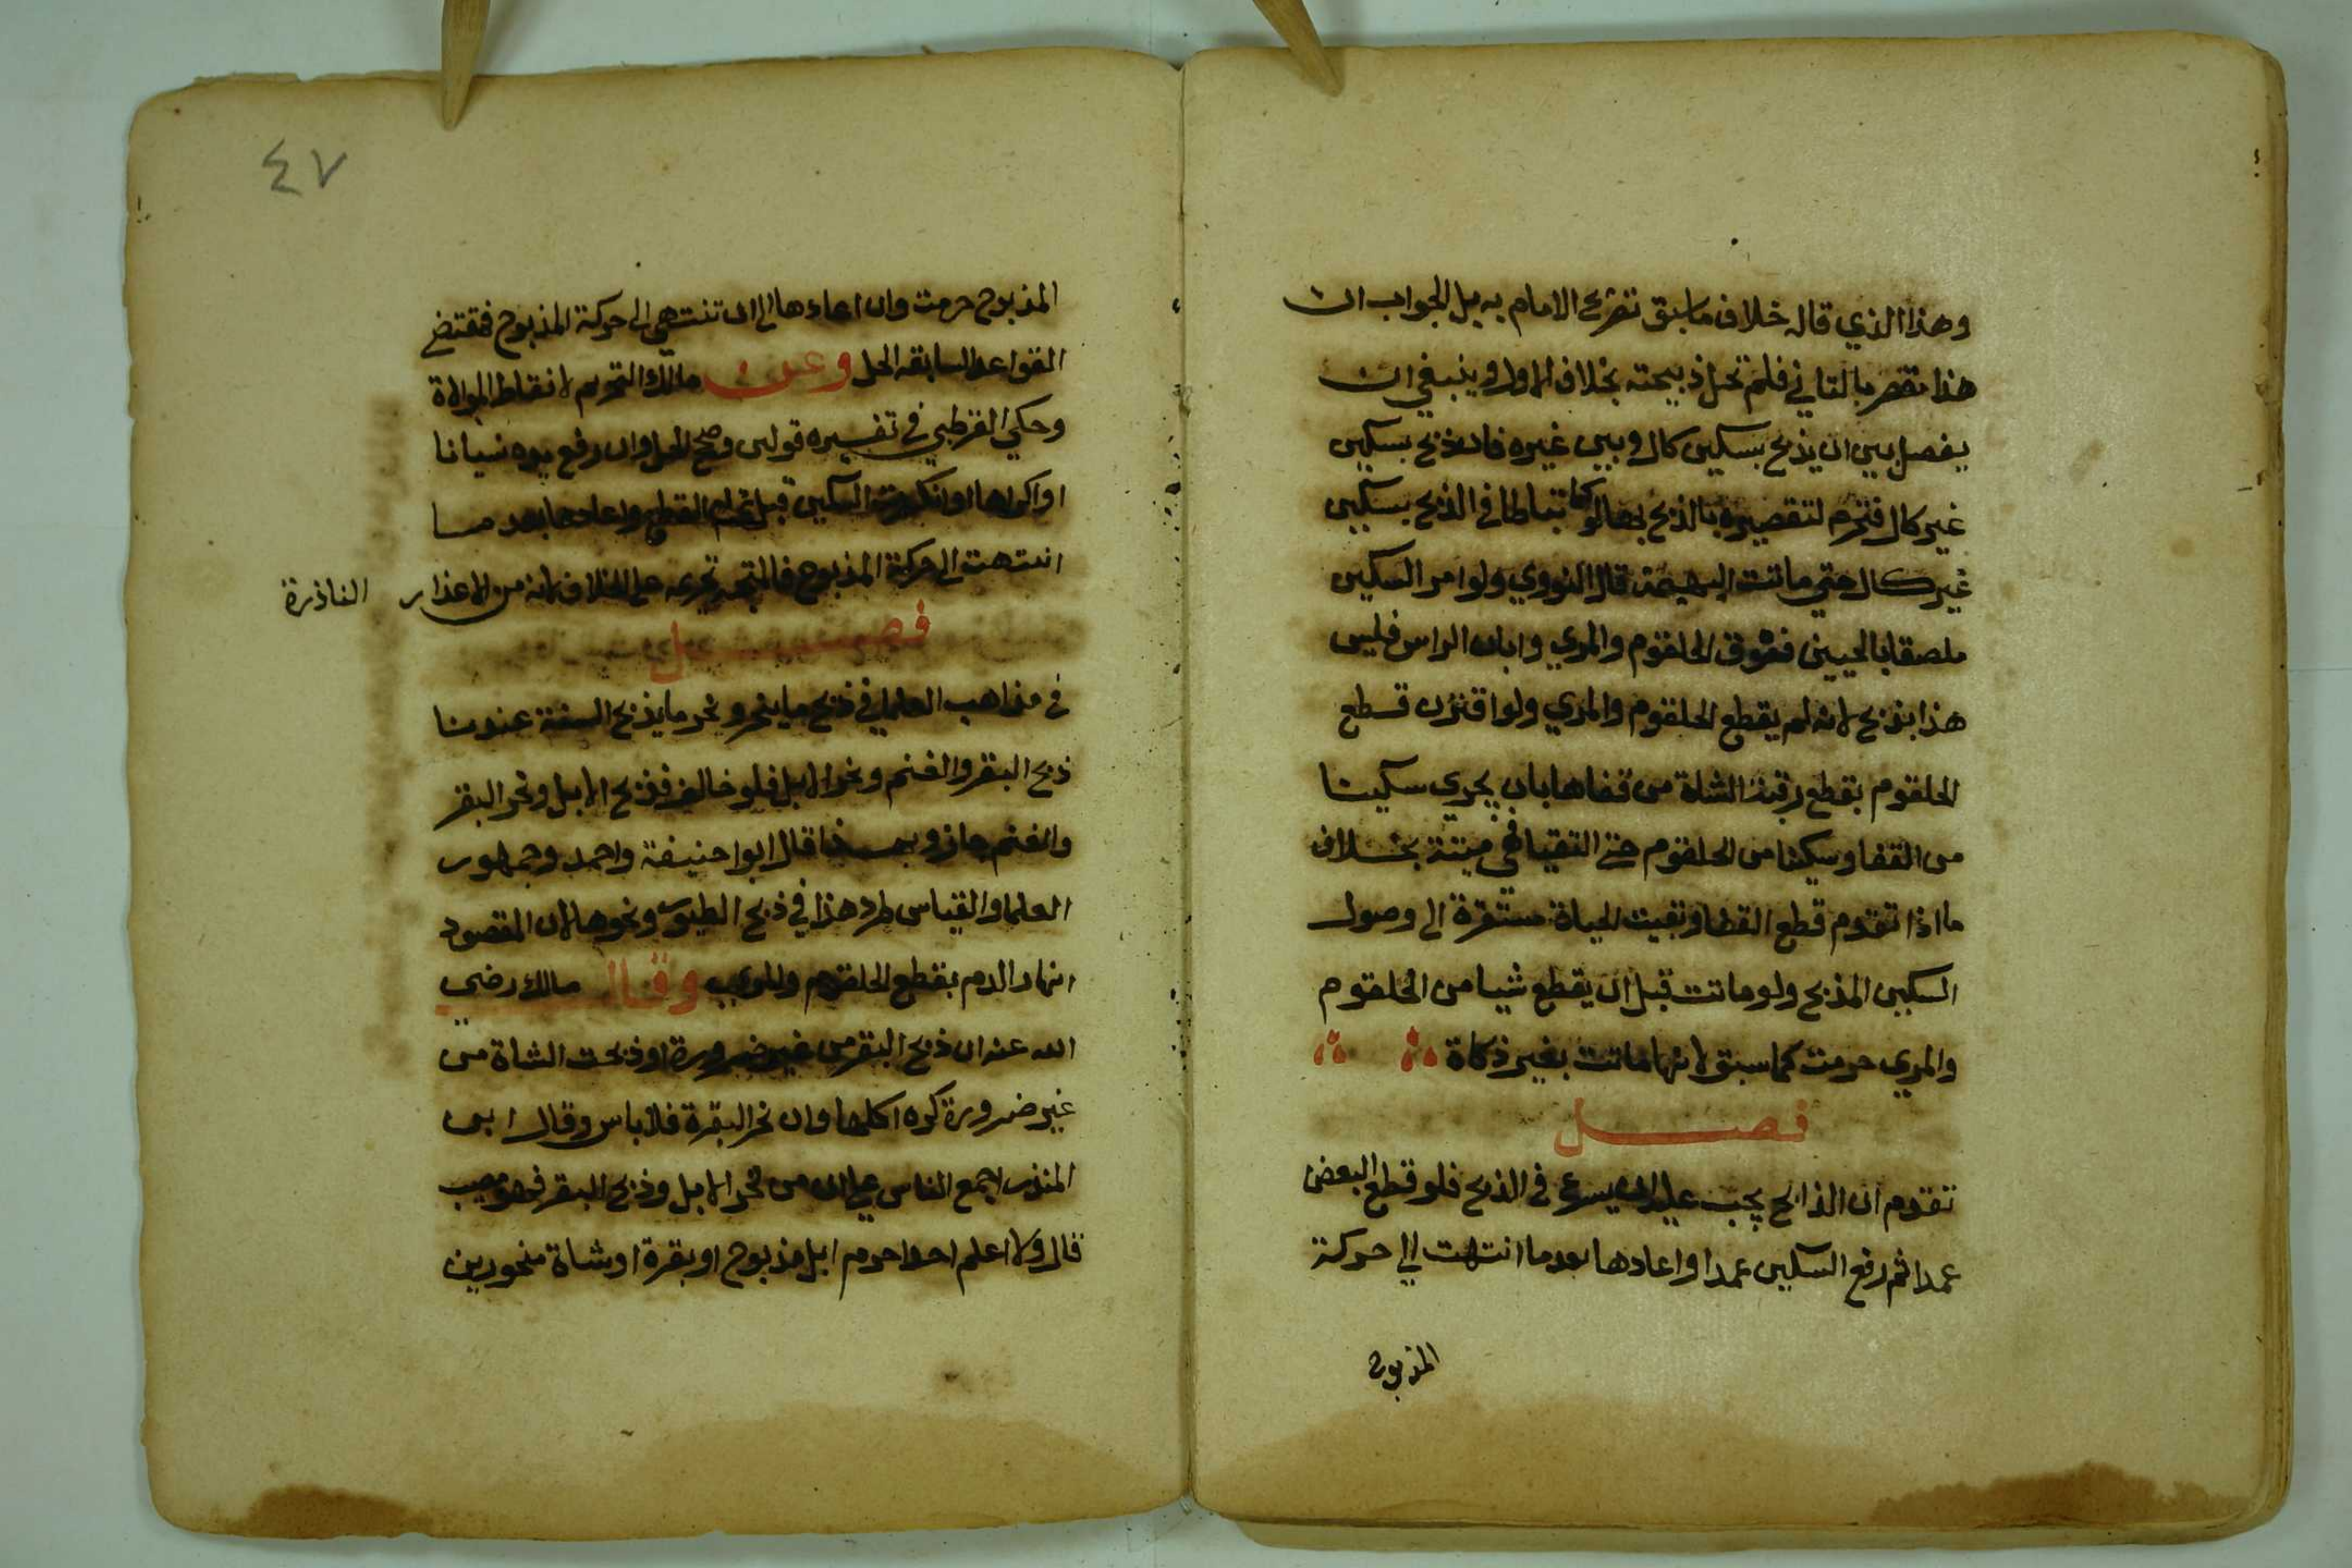 وهذا الذي قاله خلاف ما سبق تفريع الامام به بل الجواب ان
هذا مقصر بالتاني فلم تحل ذبيحته بخلاف الاول وينبغي ان
يفصل بين ان يذبح بسكين كال وبين غيره فان ذبح بسكين
غير كال فتحرم لتقصيره بالذبح بها لو تباطا في الذبح بسكين
غير كال حتى ماتت البهيمة قال النووي ولو امر السكين
ملصقا بالحيين فوق الحلقوم والمري وابان الراس فليس
هذا بذبح لانه لم يقطع الحلقوم والمري ولو اقترن قطع
الحلقوم بقطع رقبة الشاة من قفاها بان يجري سكينا
من القفا وسكينا من الحلقوم حتى التقيا فهي ميتة بخلاف
ما اذا تقدم قطع القفا وبقيت الحياة مستقرة الى وصول
السكين المذبح ولو ماتت قبل ان يقطع شيا من الحلقوم
والمري حرمت كما سبق لانها ماتت بغير ذكاة
فصل
تقدم ان الذابح يجب عليه ان يسرع في الذبح فلو قطع البعض
عمدا ثم رفع السكين عمدا واعادها بعد ما انتهت الى حركة
المذبوح
٤٧
المذبوح حرمت وان اعادها الى ان تنتهي الى حركة المذبوح فمقتضى
القواعد السابقه الحل وعن مالك التحريم لانقطاط الموالاة
وحكي القرطبي في تفسيره قولين وصحح الحل وان رفع يده نسيانا
او اكراها او انكسرت السكين قبل تمام القطع واعادها بعد مسا
انتهت الى حركة المذبوح فالمتجه تحريمه على الخلاف لانه من الاعذار النادرة
فصل
في مذاهب العلما في ذبح ما ينحر ونحر ما يذبح السنة عندنا
ذبح البقر والغنم ونحر الابل فلو خالف فذبح الابل ونحر البقر
والغنم جاز وبهذا قال ابوا حنيفة واحمد وجمهور
العلما والقياس طرد هذا في ذبح الطيور ونحوها لان المقصود
انهار الدم بقطع الحلقوم والمري وقال مالك رضي
الله عنه ان ذبح البقر من غير ضرورة او ذبحت الشاة من
غير ضرورة كره اكلها وان نحر البقرة فلا باس وقال ابن
المنذر اجمع الناس على ان من نحر الابل وذبح البقر فهو مصيب
قال ولا اعلم احدا حرم ابل مذبوح او بقرة او شاة منحورين